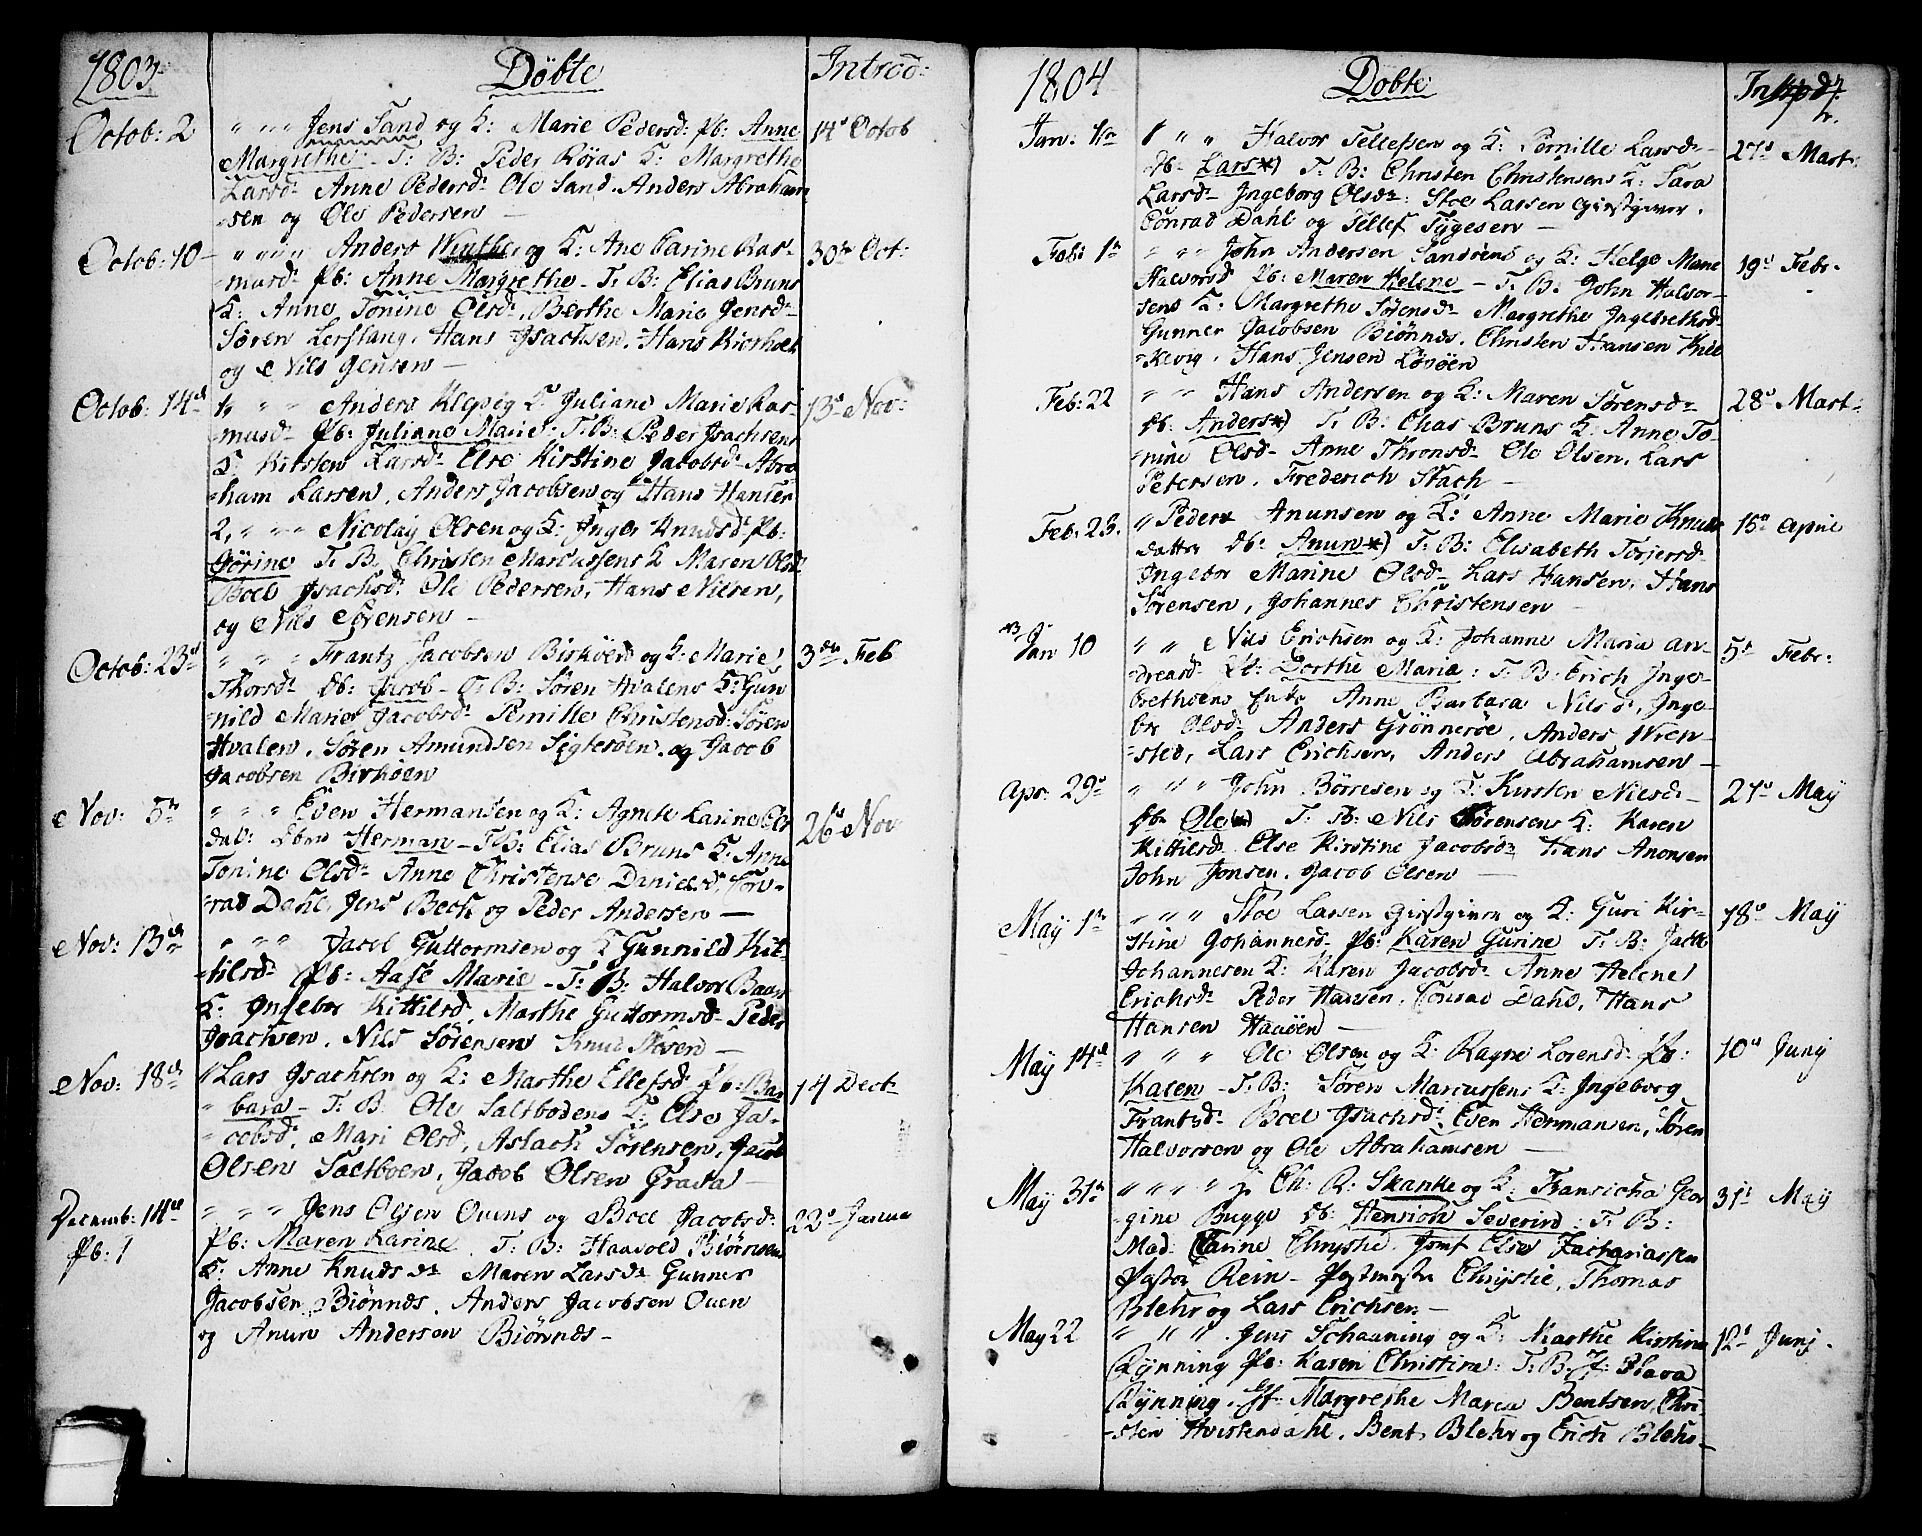 1803.
Döbte
Introd:
Octob: 2
" " " Jens Sand og K: Marie Pedersd: Pb: Anne
14d Octob
Margrethe - T. B: Peder Röras K: Margrethe
Larsdr Anne Pedersdr Ole Sand. Anders Abraham
sen og Ole Pedersen —
Octob: 10
" " " Anders Winther og K: Ane Carine Ras-
30te Oct:
musdr Pb: Anne Margrethe - T. B: Elias Bruns
K: Anne Tonine Olsdr, Berthe Marie Jensdr
Sören Lerstang, Hans Isachsen, Hans Kierholt
og Nils Jensen —
Octob: 14d
1, " " Anders Klepsig K: Juliane Marie Ras-
13d Nov:
musdr Pb: Juliane Marie. T. B: Peder Isachsens
K: Kirsten Larsdr Else Kirstine Jacobsdr Abra
ham Larsen, Anders Jacobsen og Hans Hansen
2, " " " Nicolay Olsen og K: Inger Knudsdr Pb:
Görine T. B. Christen Marcussens K Maren Olsdr
Boel Isachsdr Ole Pedersen, Hans Nilsen,
og Nils Sörensen —
Octob: 23d
" " " Frantz Jacobsen Birköen og K: Marie
3die Feb
Thorsdr Db: Jacob - T. B: Sören Hvalens K: Gun
nild Marie Jacobsdr Pernille Christensd: Sören
Hvalen, Sören Amundsen Sigtesöen, og Jacob
Jacobsen Birköen
Nov: 5te
" " " Even Hermansen og K: Agnete Larine
26de Nov
dal: Dbnd Herman - T. B: Elias Bruns K: Anne
Tonine Olsdr Anne Christense Danielsd, Con-
rad Dahl, Jens Bech og Peder Andersen —
Nov: 13de
" " " Jacob Guttormsen og K Gunnild Kit-
tilsdr Pb: Aase Marie - T. B: Halvor Baars
K: Ingebor Kittilsd, Marthe Guttormsdr Peder
Isachsen, Nils Sörensen Knud Olsen —
Nov: 18de
" Lars Isachsen og K: Marthe Ellefsd Pb: Bar
14 Decb
bara - T. B: Ole Saltbodens K: Else Ja-
cobsd. Mari Olsd, Aslach Sörensen, Jacob
Olsen Saltboen, Jacob Olsen Grava —
Decemb: 14de
" " " Jens Olsen Ovens og Boel Jacobsd:
22d Janua
Pb: 1
Pb: Maren Karine. T: B: Haavold Biörnsens
K: Anne Knudsdr Maren Larsdr Gunner
Jacobsen Biönnes, Anders Jacobsen Oven
og Anun Andersen Biönnes —
1804
Döbte
Jan. 1te
1 " " Halvor Tellefsen og K: Pernille Larsdr
27d Mart:
Db: Lars*) T. B: Christen Christensens K: Sara
Larsdr Ingeborg Olsdr: Stoe Larsen Giestgiver.
Conrad Dahl og Tellef Tygesen —
Feb: 1te
" " " John Andersen Sandöens og K: Helge Marie
19d Febr.
Halvorsd Pb: Maren Helene - T. B. John Halvor-
sens K: Margrethe Sörensdr Margrethe Ingebrethsd
Gunner Jacobsen Biönnes, Christen Hansen Kile
kevig, Hans Jensen Lövöen
Feb: 22
" " Hans Andersen og K: Maren Sörensdr
28d Mart:
Db: Anders*) T. B: Elias Bruns K: Anne To-
nine Olsdr Anne Thronsdr Ole Olsen, Lars
Petersen, Frederich Stach —
Feb: 23.
" Peder Anunsen og K: Anne Marie Knuds
15de April
datter Db: Anun*) T. B: Elisabeth Torjersd:
Ingebr Marine Olsdr Lars Hansen, Hans
Sörensen, Johannes Christensen —
NB Jan 10
" " Nils Erichsen og K: Johanne Maria An-
5te Febr:
dreasd: Dorthe Maria: T. B. Erich Inge-
brethsens Enke Anne Barbara Nilsd, Inge-
br Olsdr Anders Grönneröe, Anders Wren-
sted, Lars Erichsen, Anders Abrahamsen —
Apr: 29d
" " " John Börresen og K: Kirsten Nilsdr
27d May
Db: Ole T. B: Nils Sörensens K: Karen
Kittilsdr Else Kirstine Jacobsdr Hans Anonsen
John Jonsen, Jacob Olsen —
May 1te
" " " Stoe Larsen Giestgiver og K: Guri Kir-
18d May
stine Johannesdr Pb: Karen Gurine T. B: Jacob
Johannesen K: Karen Jacobsdr Anne Helene
Erichsdr Peder Hansen, Conrad Dahl, Hans
Hansen Haaöen —
May 14d
" " " Ole Olsen og K: Ragne Lorensd: Pb:
10d Junij
Karen - T. B: Sören Marcussens K: Ingeborg
Frantzdr Boel Isachsdr Even Hermansen, Sören
Halvorsen og Ole Abrahamsen —
May 31te
" " " Ch: R: Skanke og K: Fransicha Geor
31te May
gine Bugge Db: Henrich Severin: T. B:
Mad. Carine Chrystie Jomf Else Zachariassen
Pastor Rein - Postmester Chrystie, Thomas
Blehr og Lars Erichsen —
May 22
" " " Jens Schanning og K: Marthe Kirstine
12d Junj.
Rynning Pb: Karen Christine: T. B. Flava
Rynning, Margrethe Maria Bentsen, Chri-
sten Hvistendahl, Bent Blehr og Erich Blehr —